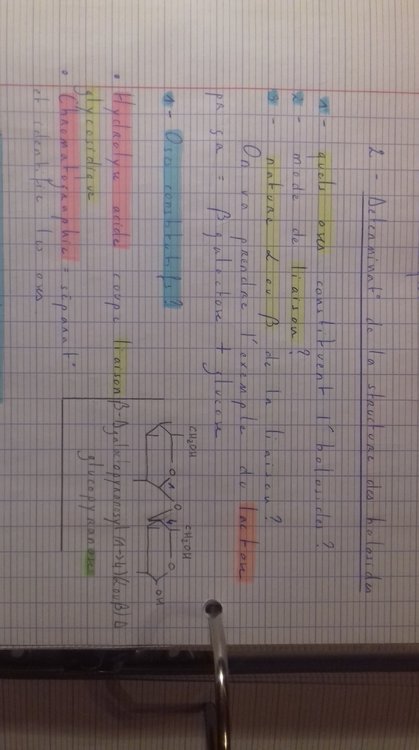 2 - Determinat° de la structure des holosides
1 - quels oses constituent l'holosides ?
2 - mode de liaison ?
3 - nature α ou β de la liaison ?
On va prendre l'exemple du lactose
= β galactose + glucose
1 - Oses constitutifs ?
• Hydrolyse acide coupe liaison
glycosidique
• Chromatographie = séparat°
et identifie les oses
CH₂OH
CH₂OH
O
O
O
1
4
OH
β-D galactopyranosyl (1→4) (α ou β) D
glucopyranose